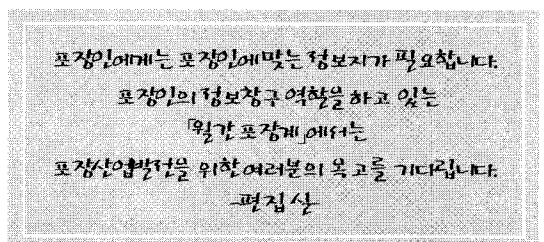 포장인에게는 포장인에 맞는 정보지가 필요합니다.
포장인의 정보창구 역할을 하고 있는
「월간 포장계」에서는
포장산업발전을 위한 여러분의 옥고를 기다립니다.
-편집실-